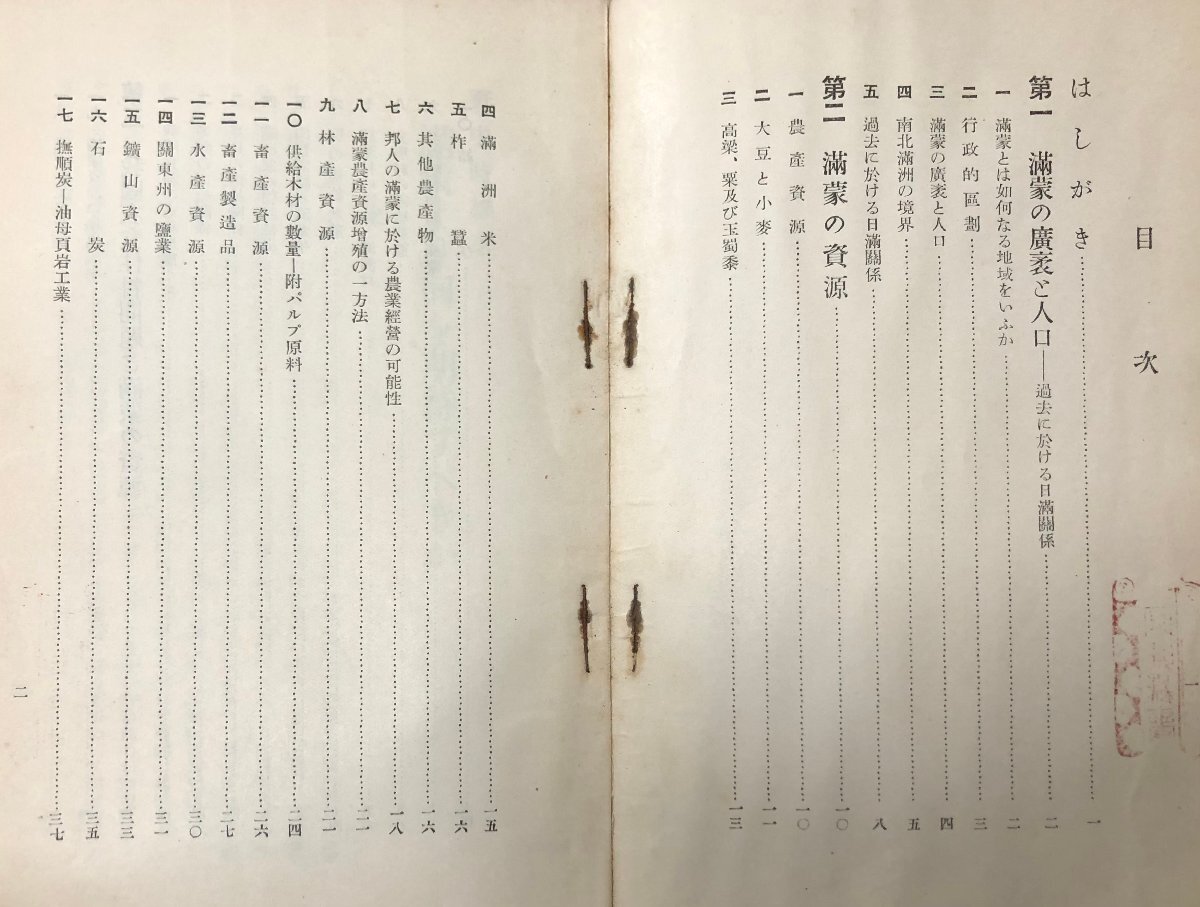 目次
はしがき……一
第一 滿蒙の廣袤と人口——過去に於ける日滿關係……二
一 滿蒙とは如何なる地域をいふか……二
二 行政的區劃……三
三 滿蒙の廣袤と人口……四
四 南北滿洲の境界……五
五 過去に於ける日滿關係……八
第二 滿蒙の資源……一〇
一 農產資源……一〇
二 大豆と小麥……一一
三 高粱、粟及び玉蜀黍……一三
一
四 滿洲米……一五
五 柞蠶……一六
六 其他農產物……一六
七 邦人の滿蒙に於ける農業經營の可能性……一八
八 滿蒙農產資源增殖の一方法……二一
九 林產資源……二一
一〇 供給木材の數量—附パルプ原料……二四
一一 畜產資源……二六
一二 畜產製造品……二七
一三 水產資源……三〇
一四 關東州の鹽業……三一
一五 鑛山資源……三三
一六 石炭……三五
一七 撫順炭—油母頁岩工業……三七
二